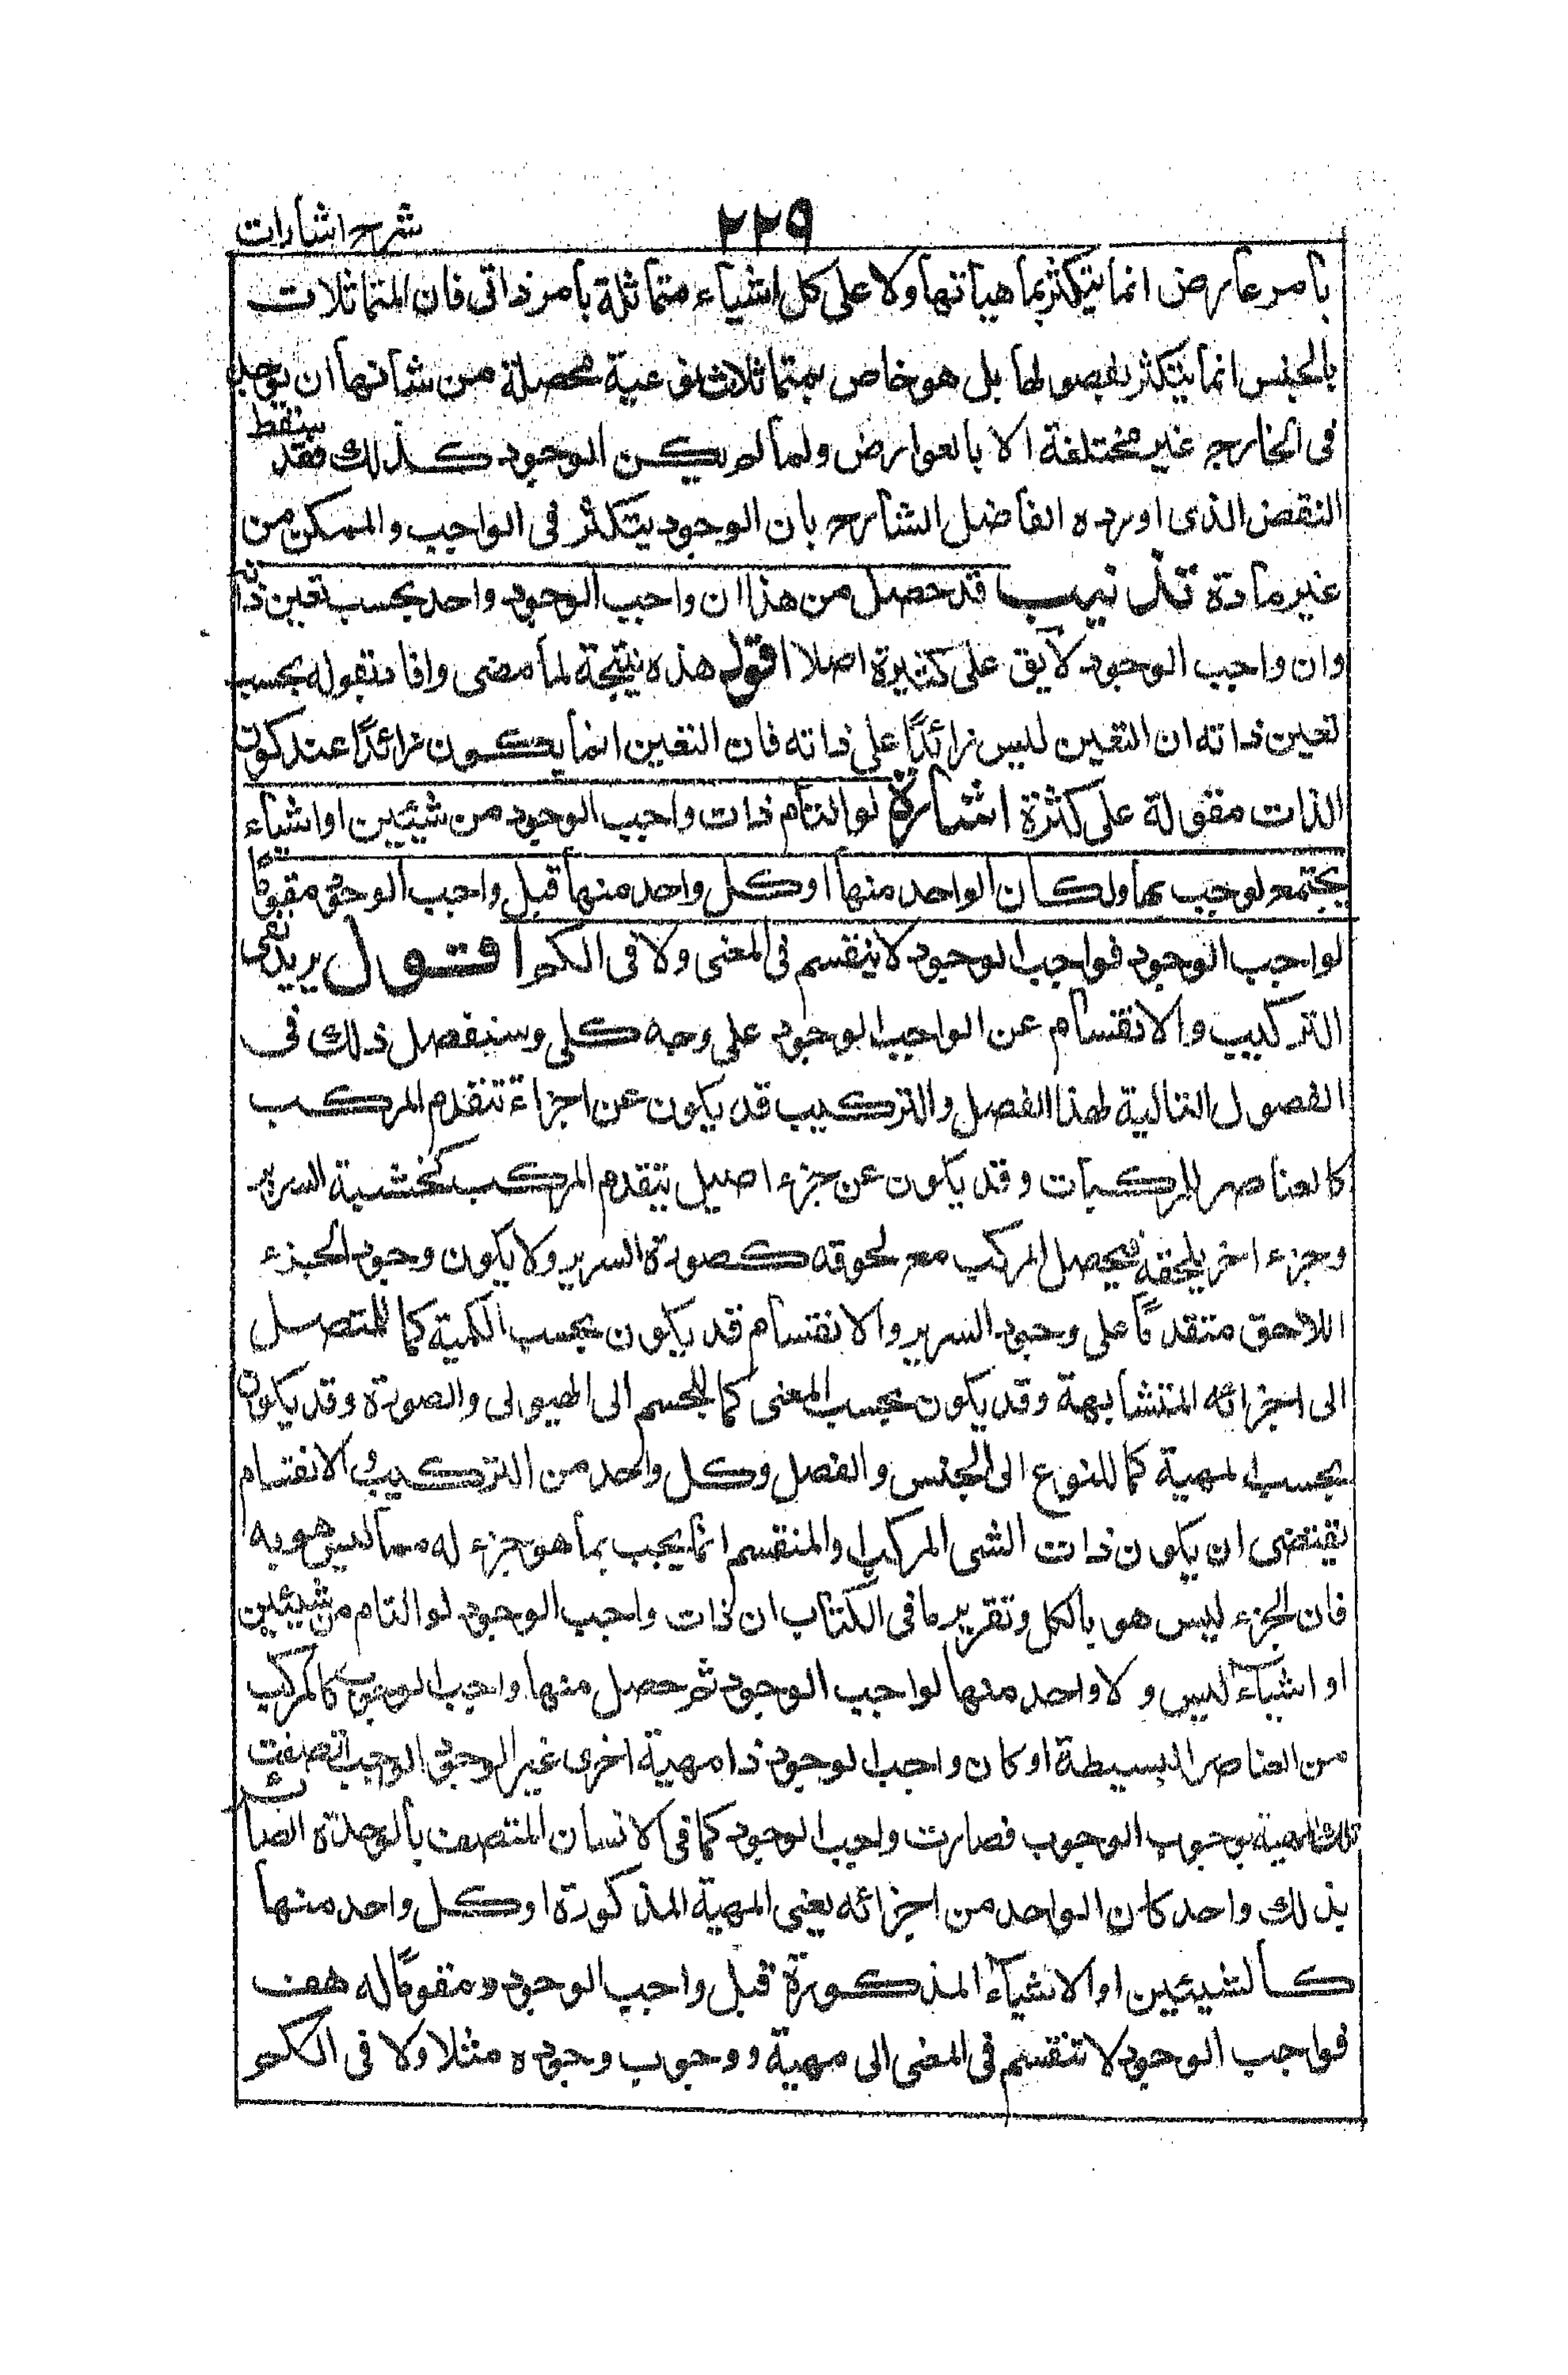 شرح اشارات
٢٢٩
بامر عارض انما يتكثر بماهياتها ولا على كل اشياء متماثلة بامر ذاتى فان المتماثلات
بالجنس انما يتكثر بفصولها بل هو خاص بمتماثلات نوعية محصلة من شانها ان يوجد
فى الخارج غير مختلفة الا بالعوارض ولما لم يكن الوجود كذلك فقد سقط
النقض الذى اورده الفاضل الشارح بان الوجود يتكثر فى الواجب والممكن من
غير مادة تذنيب قد حصل من هذا ان واجب الوجود واحد بحسب تعين ذاته
وان واجب الوجود لايق على كثيرة اصلا اقول هذه نتيجة لما مضى وافاد بقوله بحسب
تعين ذاته ان التعين ليس زائدًا على ذاته فان التعين انما يكون زائدًا عند كون
الذات مقولة على كثرة اشارة لو التام ذات واجب الوجود من شيئين او اشياء
يجتمع لوجب بها ولكان الواحد منها او كل واحد منها قبل واجب الوجود مقومًا
لواجب الوجود فواجب الوجود لا ينقسم فى المعنى ولا فى الكم اقول يريد نفى
التركيب والانقسام عن الواجب الوجود على وجه كلى وسنفصل ذلك فى
الفصول التالية لهذا الفصل والتركيب قد يكون عن اجزاء تتقدم المركب
كالعناصر للمركبات وقد يكون عن جزء اصيل يتقدم المركب كخشبة السرير
وجزء اخر يلحقه فيحصل المركب مع لحوقه كصورة السرير ولا يكون وجود الجزء
اللاحق متقدمًا على وجود السرير والانقسام قد يكون بحسب الكمية كما للمتصل
الى اجزائه المتشابهة وقد يكون بحسب المعنى كما للجسم الى الهيولى والصورة وقد يكون
بحسب المهية كما للنوع الى الجنس والفصل وكل واحد من التركيب والانقسام
يقتضى ان يكون ذات الشى المركب والمنقسم انما يجب بما هو جزء له مما ليس هو به
فان الجزء ليس هو بالكل وتقرير ما فى الكتاب ان ذات واجب الوجود لو التام من شيئين
او اشياء ليس ولا واحد منها لواجب الوجود ثم حصل منها واجب الوجود كالمركب
من العناصر البسيطة او كان واجب الوجود ذا مهية اخرى غير الوجود الواجب اتصفت
تلك المهية بوجوب الوجوب فصارت واجب الوجود كما فى الانسان المتصف بالوحدة الصائر
بذلك واحد كان الواحد من اجزائه يعنى المهية المذكورة او كل واحد منها
كالشيئين او الاشياء المذكورة قبل واجب الوجود و مقومًا له هف
فواجب الوجود لا تنقسم فى المعنى الى مهية ووجوب وجوده مثلا ولا فى الكم